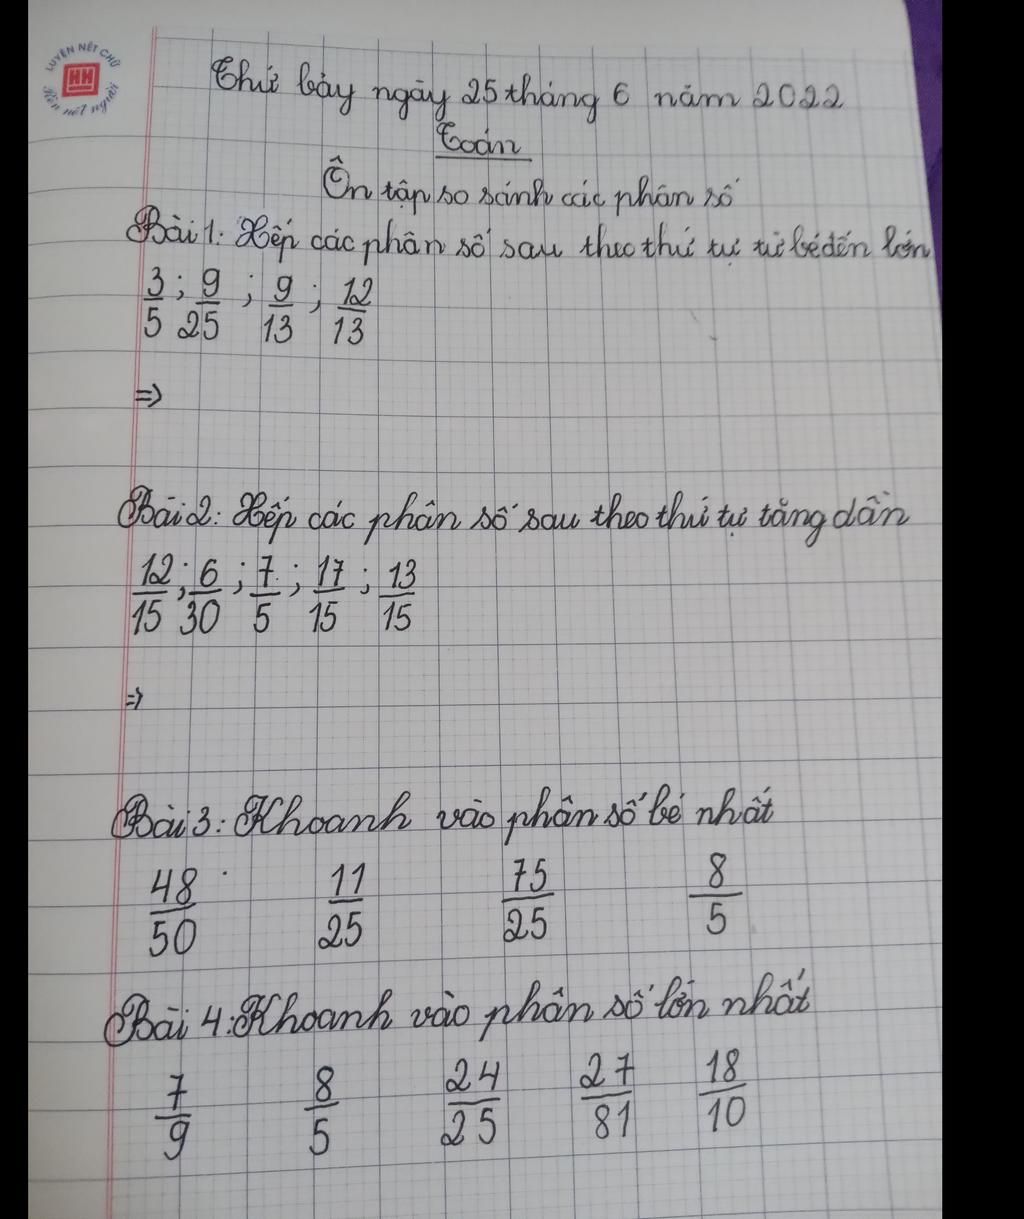 LUYỆN NÉT CHỮ
HH
Rèn nết người
Thứ bảy ngày 25 tháng 6 năm 2022
Toán
Ôn tập so sánh các phân số
Bài 1: Xếp các phân số sau theo thứ tự từ bé đến lớn
3/5 ; 9/25 ; 9/13 ; 12/13
=>
Bài 2: Xếp các phân số sau theo thứ tự tăng dần
12/15 ; 6/30 ; 7/5 ; 17/15 ; 13/15
=>
Bài 3: Khoanh vào phân số bé nhất
48/50 11/25 75/25 8/5
Bài 4: Khoanh vào phân số lớn nhất
7/9 8/5 24/25 27/81 18/10